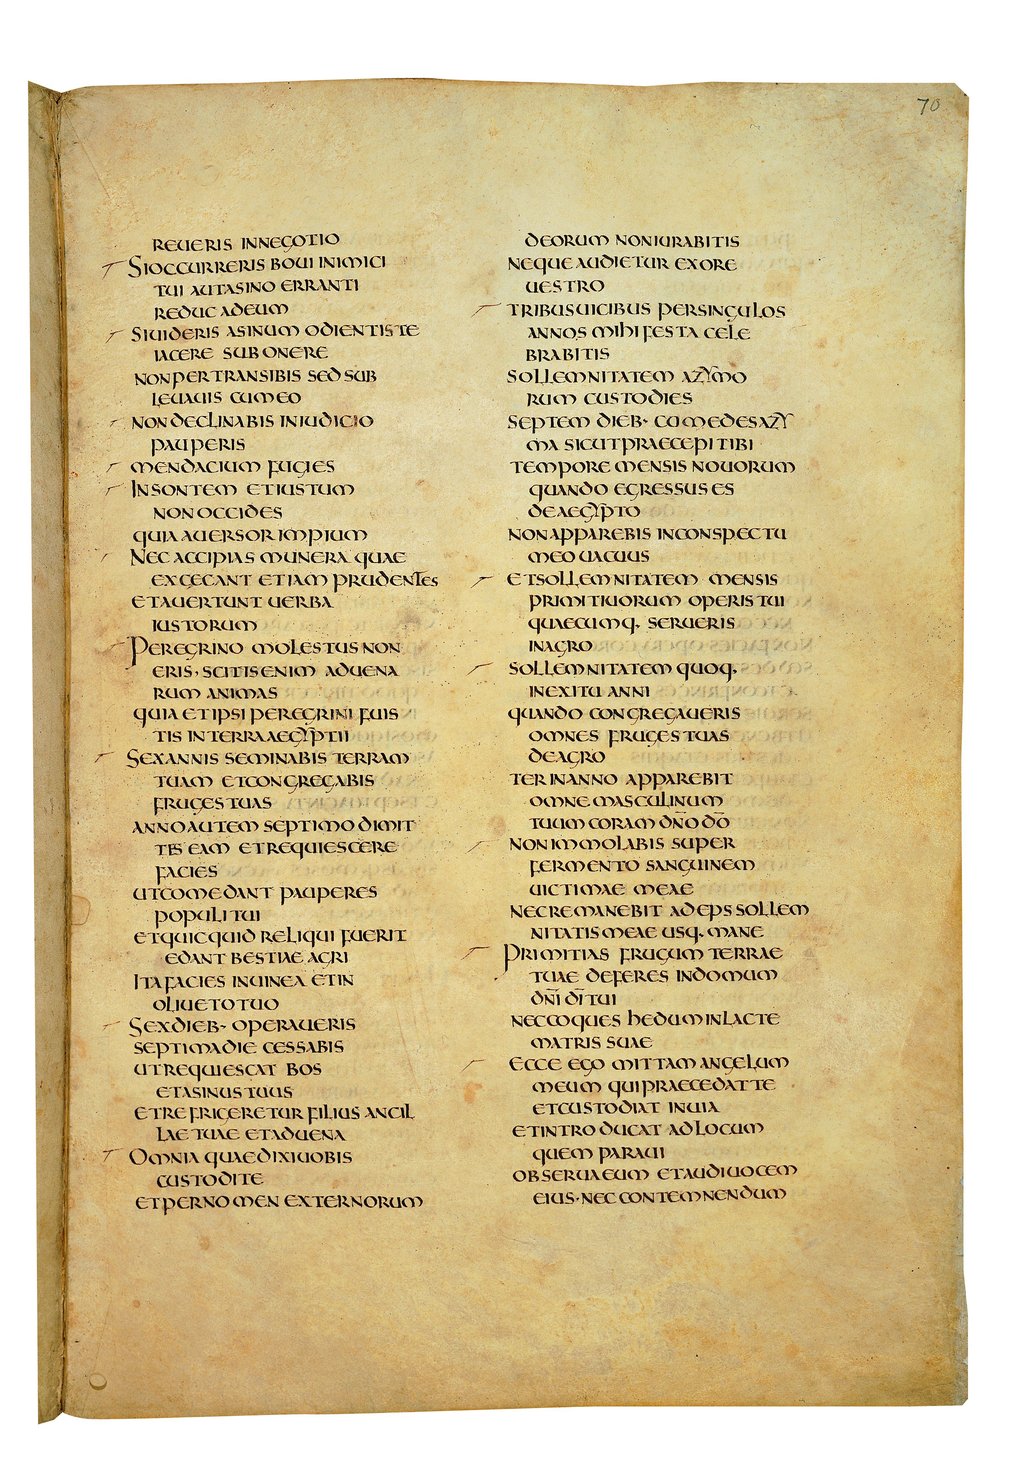 70
REUERIS INNEGOTIO
SIOCCURRERIS BOUI INIMICI
TUI AUTASINO ERRANTI
REDUC ADEUM
SIUIDERIS ASINUM ODIENTISTE
IACERE SUB ONERE
NONPERTRANSIBIS SEDSUB
LEUAUIS CUMEO
NONDECLINABIS INIUDICIO
PAUPERIS
MENDACIUM FUGIES
INSONTEM ETIUSTUM
NONOCCIDES
QUIA AUERSOR IMPIUM
NEC ACCIPIAS MUNERA QUAE
EXCECANT ETIAM PRUDENTES
ETAUERTUNT UERBA
IUSTORUM
PEREGRINO MOLESTUS NON
ERIS· SCITISENIM ADUENA
RUM ANIMAS
QUIA ETIPSI PEREGRINI FUIS
TIS INTERRAAEGYPTII
SEXANNIS SEMINABIS TERRAM
TUAM ETCONGREGABIS
FRUGES TUAS
ANNOAUTEM SEPTIMO DIMIT
TES EAM ETREQUIESCERE
FACIES
UTCOMEDANT PAUPERES
POPULI TUI
ETQUICQUID RELIQUI FUERIT
EDANT BESTIAE AGRI
ITAFACIES INUINEA ETIN
OLIUETO TUO
SEXDIEB· OPERAUERIS
SEPTIMADIE CESSABIS
UTREQUIESCAT BOS
ETASINUS TUUS
ETREFRIGERETUR FILIUS ANCIL
LAE TUAE ETADUENA
OMNIA QUAEDIXIUOBIS
CUSTODITE
ETPERNOMEN EXTERNORUM
DEORUM NONIURABITIS
NEQUE AUDIETUR EXORE
UESTRO
TRIBUSUICIBUS PERSINGULOS
ANNOS MIHI FESTA CELE
BRABITIS
SOLLEMNITATEM AZYMO
RUM CUSTODIES
SEPTEM DIEB· COMEDES AZY
MA SICUTPRAECEPI TIBI
TEMPORE MENSIS NOUORUM
QUANDO EGRESSUS ES
DEAEGYPTO
NONAPPAREBIS INCONSPECTU
MEO UACUUS
ETSOLLEMNITATEM MENSIS
PRIMITIUORUM OPERIS TUI
QUAECUMQ· SERUERIS
INAGRO
SOLLEMNITATEM QUOQ·
INEXITU ANNI
QUANDO CONGREGAUERIS
OMNES FRUGES TUAS
DEAGRO
TER INANNO APPAREBIT
OMNE MASCULINUM
TUUM CORAM DN̄O DŌ
NON IMMOLABIS SUPER
FERMENTO SANGUINEM
UICTIMAE MEAE
NECREMANEBIT ADEPS SOLLEM
NITATIS MEAE USQ· MANE
PRIMITIAS FRUGUM TERRAE
TUAE DEFERES INDOMUM
DN̄I DĪ TUI
NECCOQUES HEDUM INLACTE
MATRIS SUAE
ECCE EGO MITTAM ANGELUM
MEUM QUIPRAECEDAT TE
ETCUSTODIAT INUIA
ETINTRODUCAT ADLOCUM
QUEM PARAUI
OBSERUAEUM ETAUDIUOCEM
EIUS· NEC CONTEMNENDUM